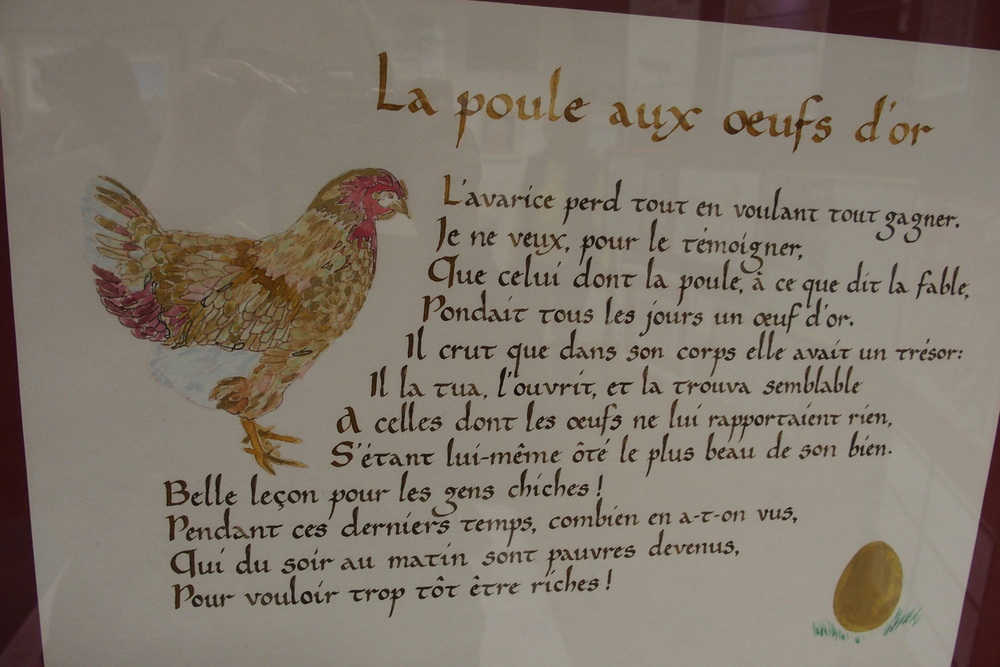 La poule aux œufs d'or
L'avarice perd tout en voulant tout gagner.
Je ne veux, pour le témoigner,
Que celui dont la poule, à ce que dit la fable,
Pondait tous les jours un œuf d'or.
Il crut que dans son corps elle avait un trésor:
Il la tua, l'ouvrit, et la trouva semblable
A celles dont les œufs ne lui rapportaient rien,
S'étant lui-même ôté le plus beau de son bien.
Belle leçon pour les gens chiches !
Pendant ces derniers temps, combien en a-t-on vus,
Qui du soir au matin sont pauvres devenus,
Pour vouloir trop tôt être riches !